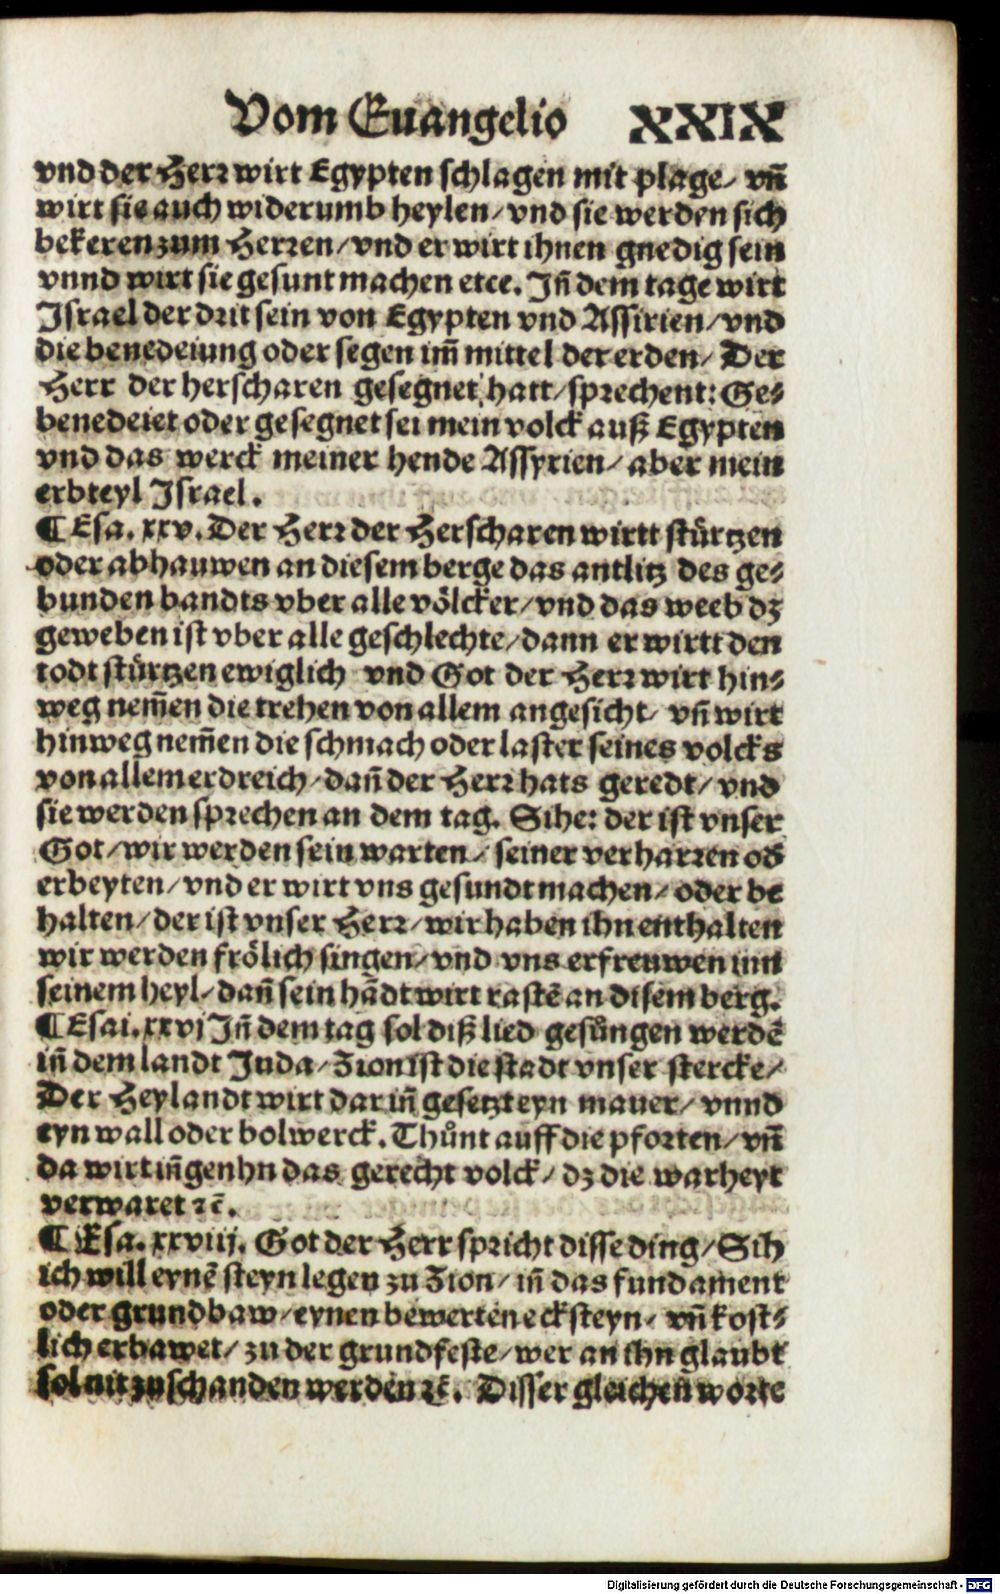 Vom Euangelio XXIX
vnd der Herr wirt Egypten schlagen mit plage/ vñ
wirt sie auch widerumb heylen/ vnd sie werden sich
bekeren zum Herren/ vnd er wirt ihnen gnedig sein
vnnd wirt sie gesunt machen etce. Jñ dem tage wirt
Israel der drit sein von Egypten vnd Assirien/ vnd
die benedeiung oder segen im̃ mittel der erden/ Der
Herr der herscharen gesegnet hatt/ sprechent: Ge⸗
benedeiet oder gesegnet sei mein volck auß Egypten
vnd das werck meiner hende Assyrien/ aber mein
erbteyl Israel.
¶ Esa. xxv. Der Herr der Herscharen wirtt stürtzen
oder abhauwen an diesem berge das antlitz des ge⸗
bunden bandts vber alle völcker/ vnd das weeb dz
geweben ist vber alle geschlechte/ dann er wirtt den
todt stürtzen ewiglich vnd Got der Herr wirt hin⸗
weg nem̃en die trehen von allem angesicht/ vñ wirt
hinweg nem̃en die schmach oder laster seines volcks
von allem erdreich/ dañ der Herr hats geredt/ vnd
sie werden sprechen an dem tag. Sihe: der ist vnser
Got/ wir werden sein warten/ seiner verharren od̕
erbeyten/ vnd er wirt vns gesundt machen/ oder be
halten/ der ist vnser Herr/ wir haben ihn enthalten
wir werden frölich singen/ vnd vns erfreuwen inn
seinem heyl/ dañ sein hãdt wirt rastẽ an disem berg.
¶ Esai. xxvj Jñ dem tag sol diß lied gesůngen werdẽ
iñ dem landt Juda/ Zion ist die stadt vnser stercke/
Der Heylandt wirt dar iñ gesetzt eyn mauer/ vnnd
eyn wall oder bolwerck. Thůnt auff die pforten/ vñ
da wirt iñgenhn das gerecht volck/ dz die warheyt
verwaret ꝛc̃.
¶ Esa. xxviij. Got der Herr spricht disse ding/ Sih
ich will eynẽ steyn legen zu Zion/ iñ das fundament
oder grundbaw/ eynen bewerten ecksteyn/ vñ kost⸗
lich erbawet/ zu der grundfeste/ wer an ihn glaubt
sol nit zuschanden werden ꝛc̃. Disser gleichen worte
Digitalisierung gefördert durch die Deutsche Forschungsgemeinschaft - DFG